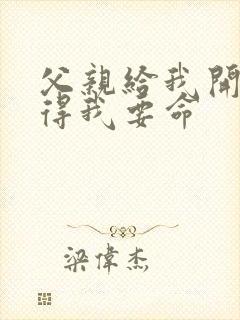 父親給我開
得我要命
梁偉杰